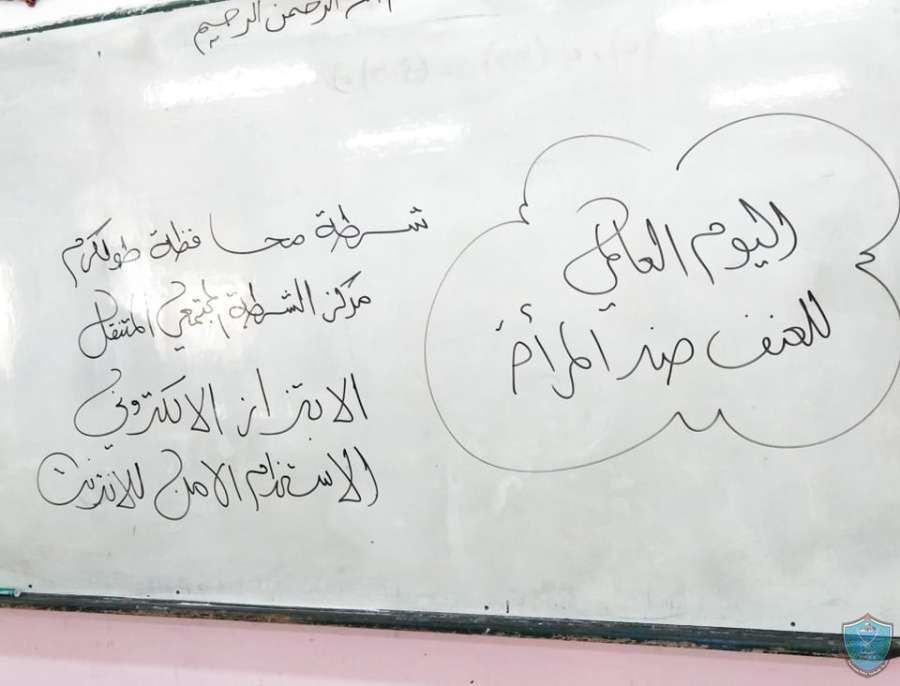 بسم الله الرحمن الرحيم
اليوم العالمي
للعنف ضد المرأة
شرطة محافظة طولكرم
مركز الشرطة المجتمعي المتنقل
الابتزاز الالكتروني
الاستخدام الامن للانترنت